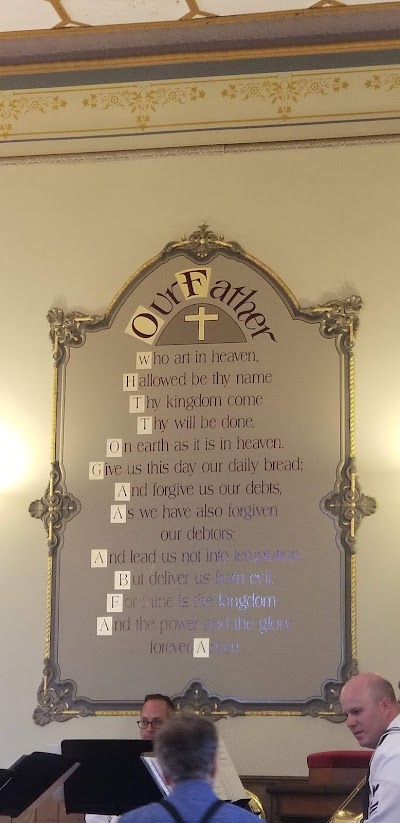 Our Father
Who art in heaven,
Hallowed be thy name
Thy kingdom come
Thy will be done,
On earth as it is in heaven.
Give us this day our daily bread;
And forgive us our debts,
As we have also forgiven
our debtors;
And lead us not into temptation,
But deliver us from evil,
For thine is the kingdom
And the power and the glory
forever. Amen.